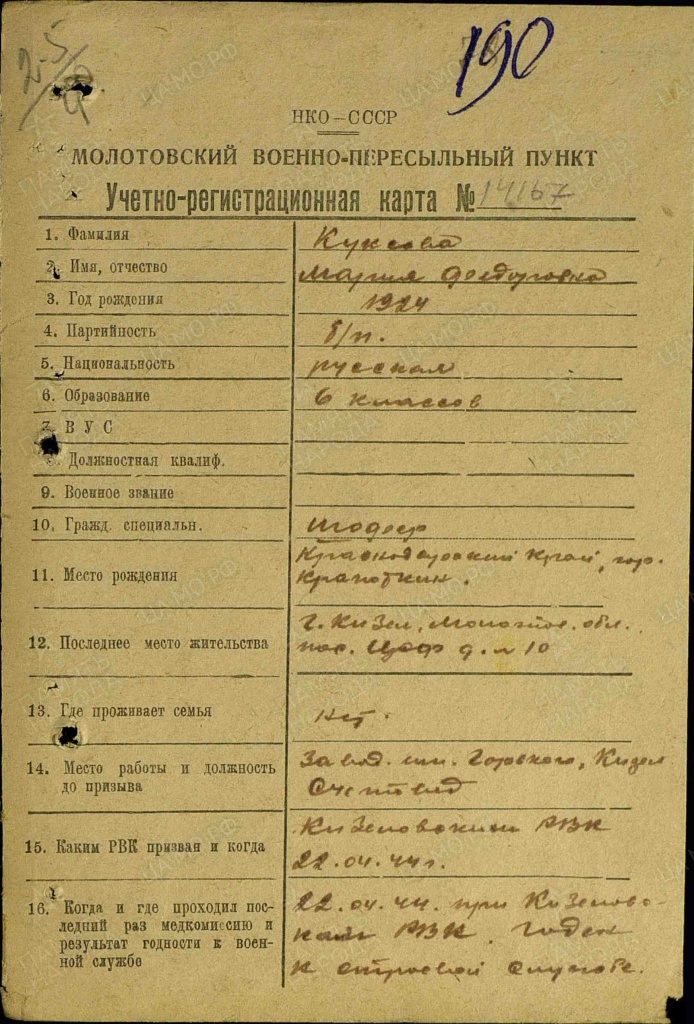 190
НКО-СССР
МОЛОТОВСКИЙ ВОЕННО-ПЕРЕСЫЛЬНЫЙ ПУНКТ
Учетно-регистрационная карта № 14167
1. Фамилия Куксова
2. Имя, отчество Мария Федоровна
3. Год рождения 1924
4. Партийность б/п.
5. Национальность русская
6. Образование 6 классов
7. В У С
8. Должностная квалиф.
9. Военное звание
10. Гражд. специальн.
11. Место рождения Краснодарский край, гор.
Крапоткин.
12. Последнее место жительства г. Кизел, Молотов. обл.
пос. Цоф д. № 10
13. Где проживает семья нет.
14. Место работы и должность Завод. им. Горького, Кизел
до призыва Счетовод
15. Каким РВК призван и когда Кизеловским РВК
22.04.44г.
16. Когда и где проходил пос- 22.04.44. при Кизелов-
ледний раз медкомиссию и ском РВК. Годен
результат годности к воен-
ной службе к строевой службе.